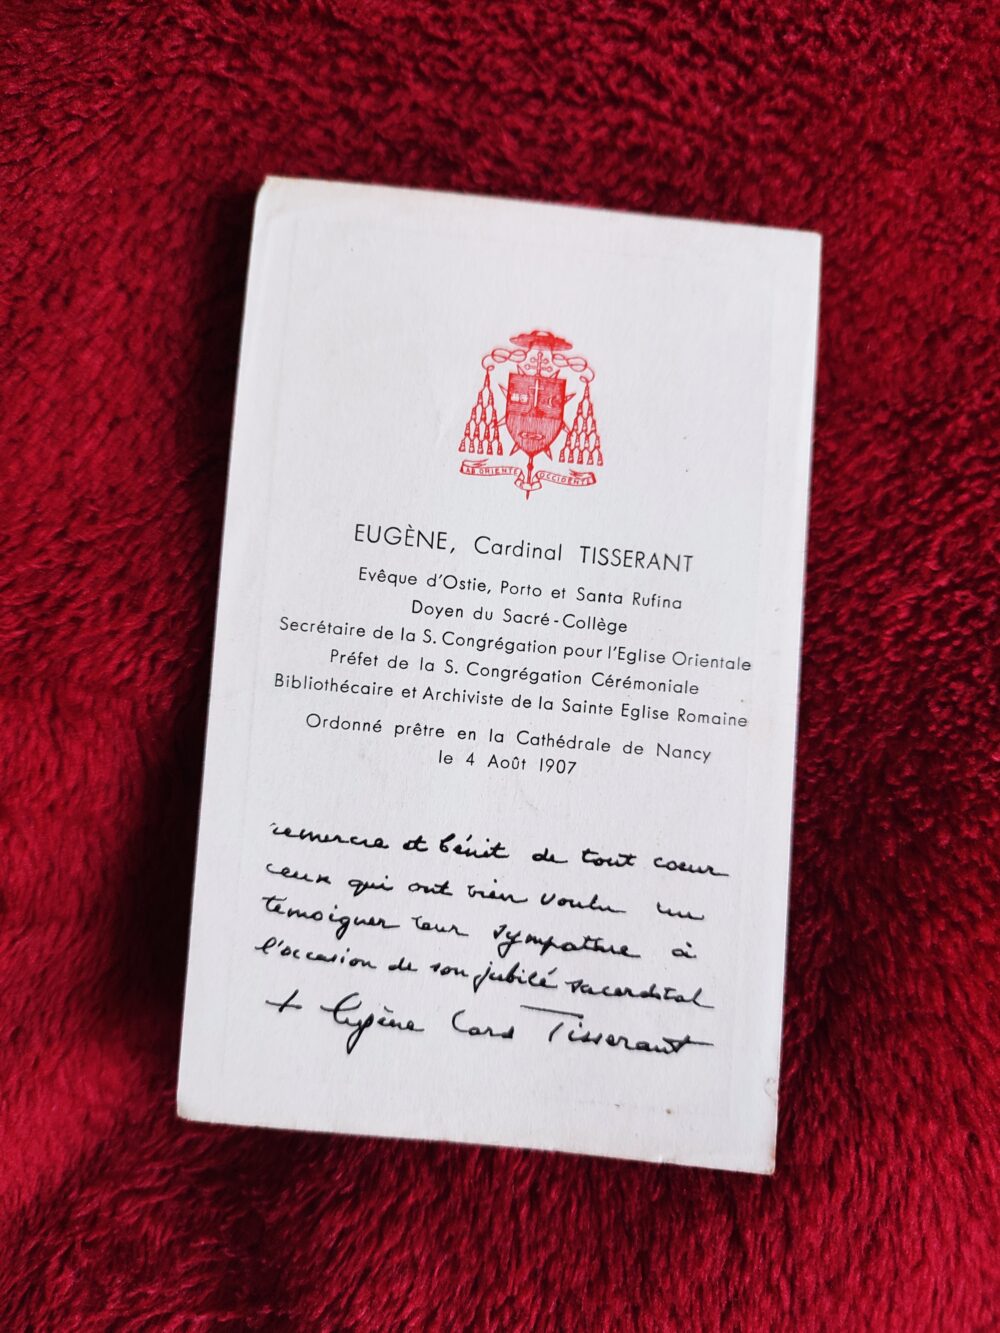 AB ORIENTE
E
OCCIDENTE
EUGÈNE, Cardinal TISSERANT
Evêque d'Ostie, Porto et Santa Rufina
Doyen du Sacré-Collège
Secrétaire de la S. Congrégation pour l'Eglise Orientale
Préfet de la S. Congrégation Cérémoniale
Bibliothécaire et Archiviste de la Sainte Eglise Romaine
Ordonné prêtre en la Cathédrale de Nancy
le 4 Août 1907
remercie et bénit de tout coeur
ceux qui ont bien voulu lui
témoigner leur sympathie à
l'occasion de son jubilé sacerdotal
+ Eugène Card Tisserant